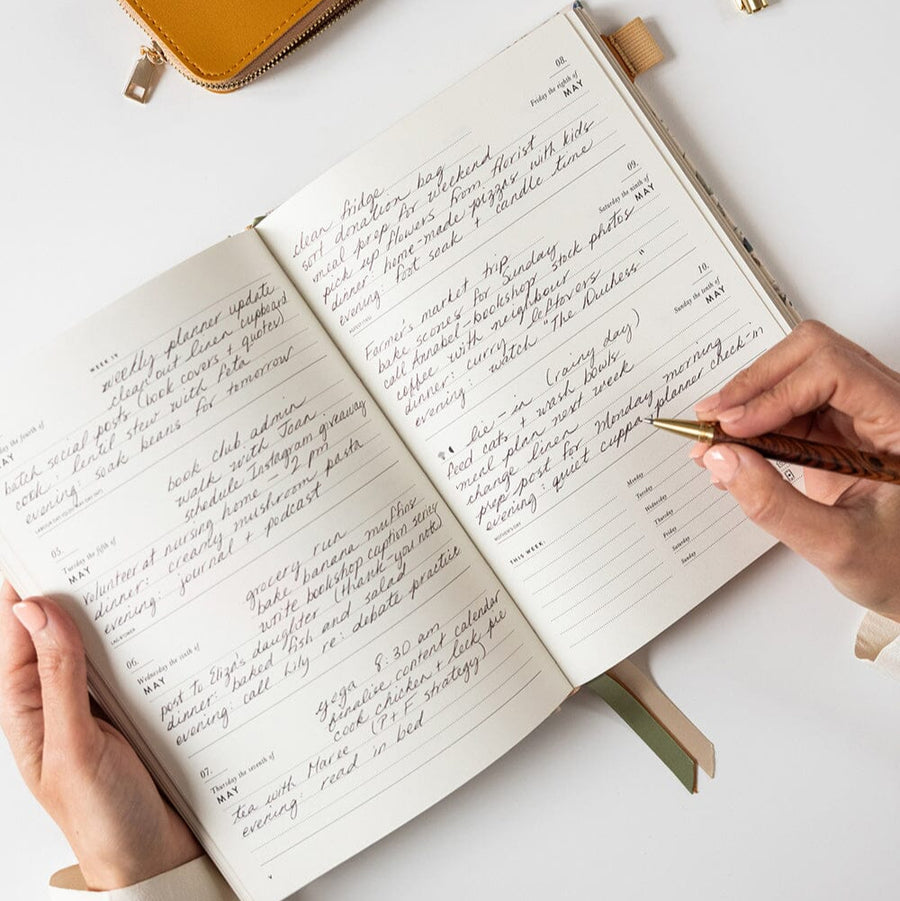 WEEK 19
weekly planner update
clean out linen cupboard
the fourth of
MAY
batch social posts (book covers + quotes)
cook: lentil stew with feta
evening: soak beans for tomorrow
book club admin
walk with Joan
schedule Instagram giveaway
05.
Tuesday the fifth of
MAY
volunteer at nursing home - 2 pm
dinner: creamy mushroom pasta
evening: journal + podcast
grocery run
bake banana muffins
write bookshop caption series
06.
Wednesday the sixth of
MAY
post to Eliza's daughter (thank you note)
dinner: baked fish and salad
evening: call Lily re: debate practice
yoga 8:30 am
finalise content calendar
cook chicken + leek pie
07.
Thursday the seventh of
MAY
tea with Maree (P+F strategy)
evening: read in bed
08.
Friday the eighth of
MAY
clean fridge
sort donation bag
meal prep for weekend
pick up flowers from florist
dinner: home-made pizzas with kids
evening: foot soak + candle time
09.
Saturday the ninth of
MAY
Farmer's market trip
bake scones for Sunday
call Annabel-bookshop stock photos
coffee with neighbour
dinner: curry leftovers
evening: watch "The Duchess"
10.
Sunday the tenth of
MAY
lie-in (rainy day)
feed cats + wash bowls
meal plan next week
change linen
prep post for Monday morning
evening: quiet cuppa planner check-in
MOTHER'S DAY
THIS WEEK:
Monday
Tuesday
Wednesday
Thursday
Friday
Saturday
Sunday